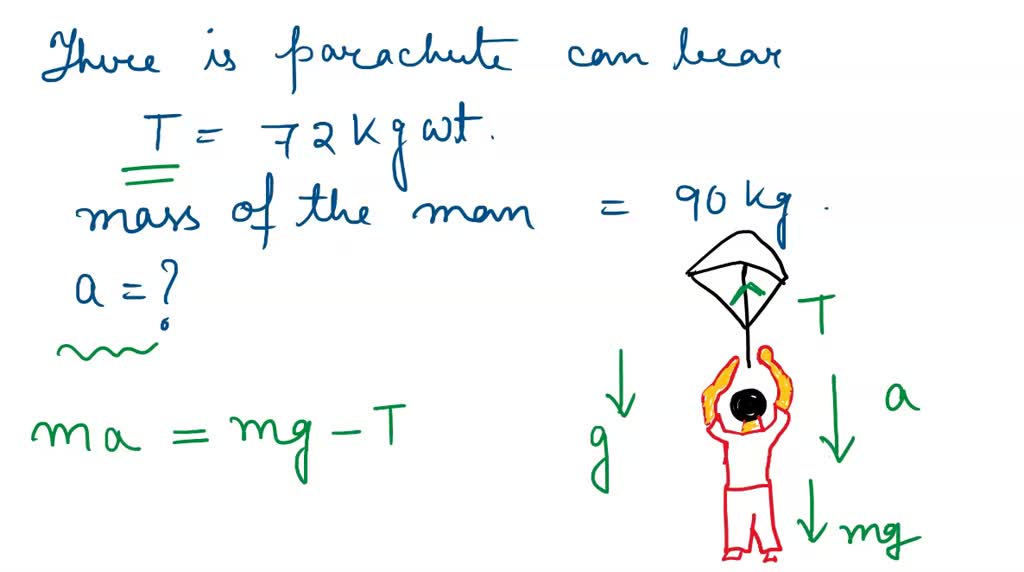 There is parachute can bear
T = 72 kg wt.
mass of the man = 90 kg.
a = ?
T
a
g
ma = mg - T
mg